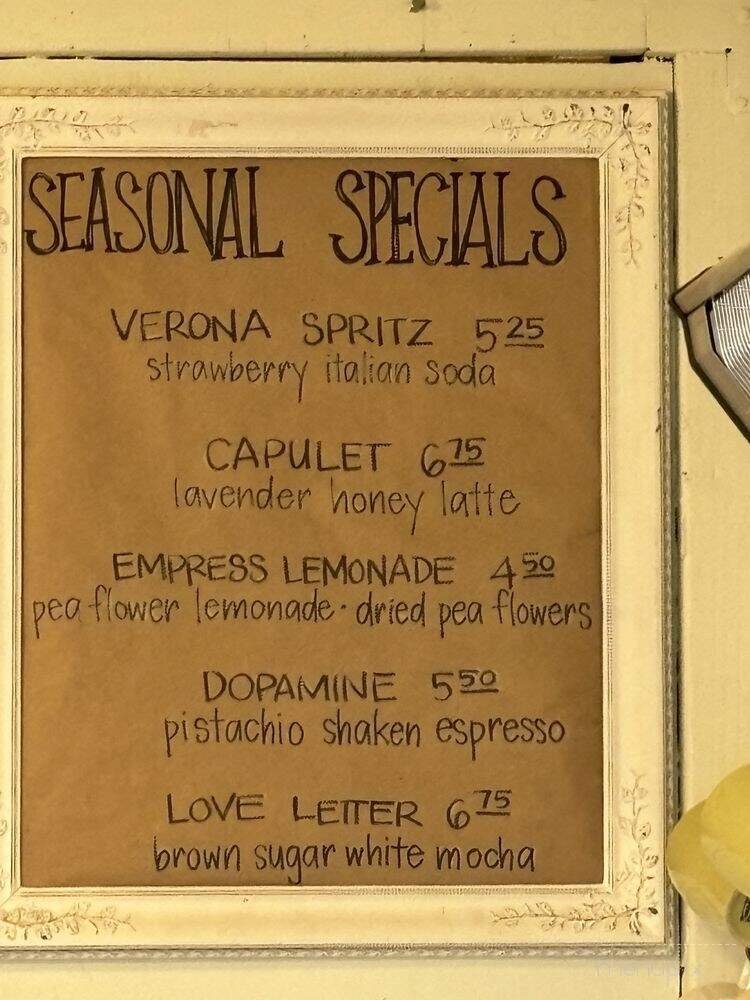 SEASONAL SPECIALS
VERONA SPRITZ 5 25
strawberry italian soda
CAPULET 6 75
lavender honey latte
EMPRESS LEMONADE 4 50
pea flower lemonade · dried pea flowers
DOPAMINE 5 50
pistachio shaken espresso
LOVE LETTER 6 75
brown sugar white mocha